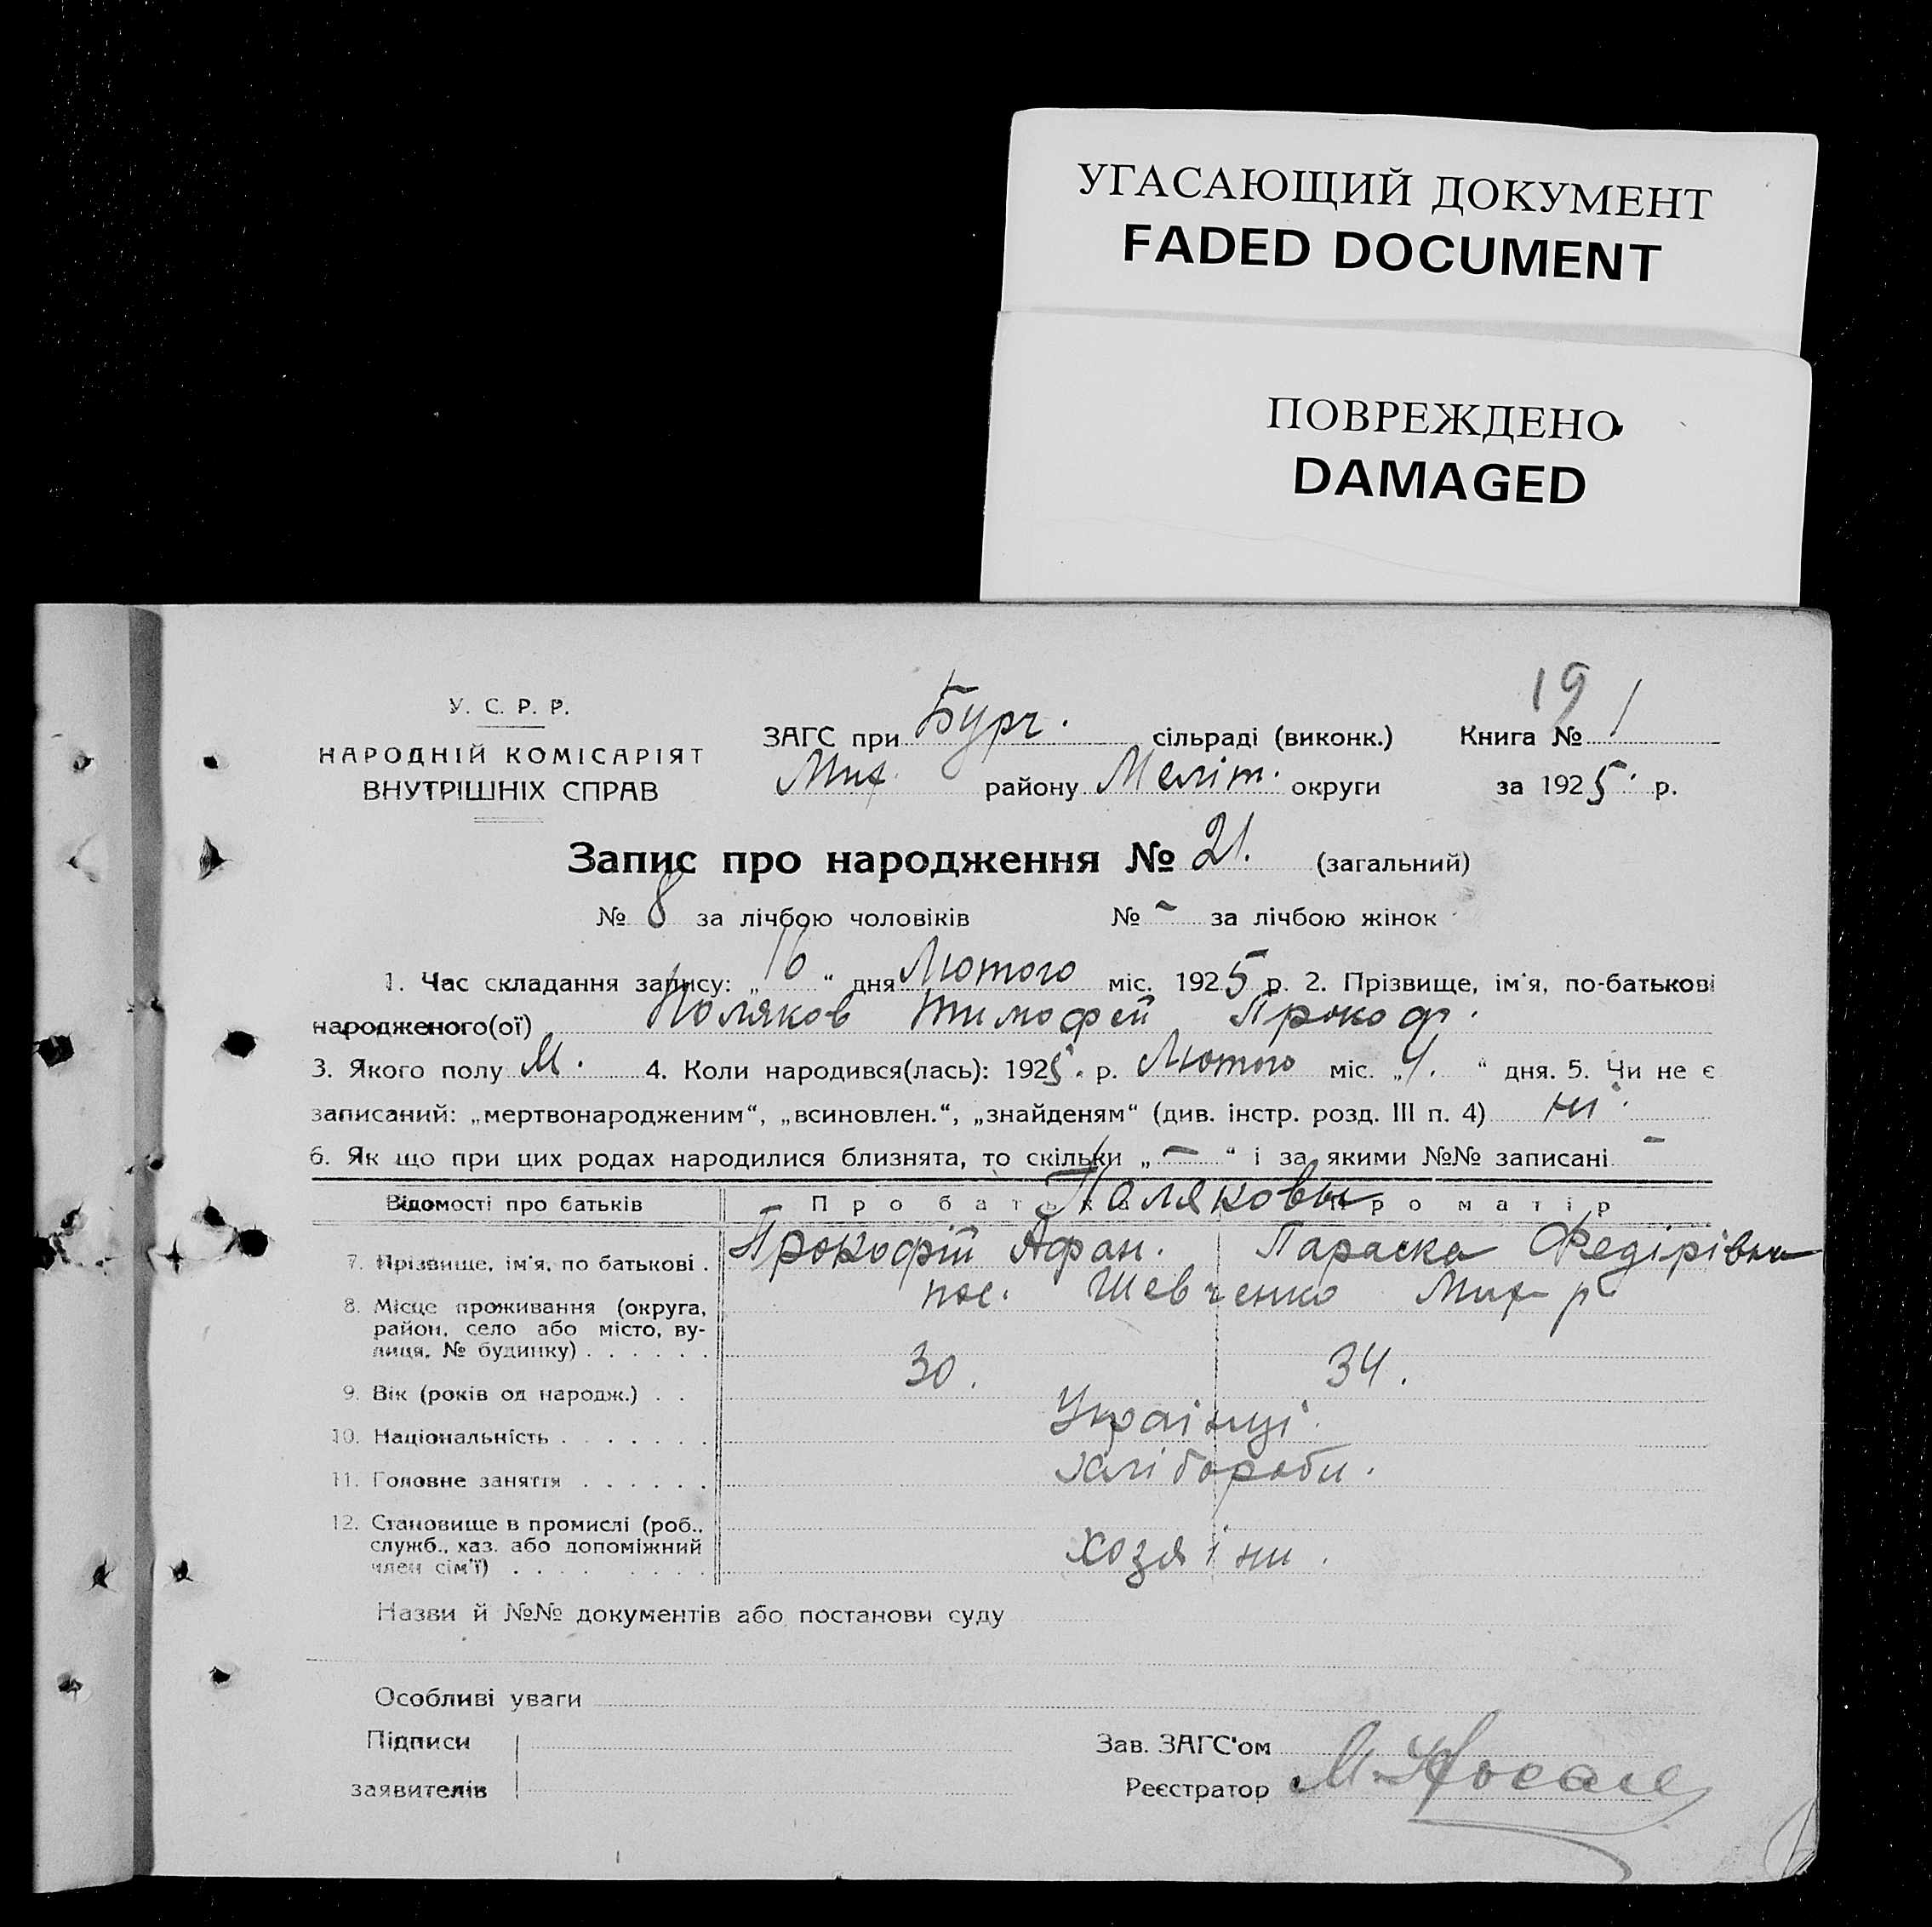 УГАСАЮЩИЙ ДОКУМЕНТ
FADED DOCUMENT
ПОВРЕЖДЕНО
DAMAGED
19
У. С. Р. Р.
НАРОДНІЙ КОМІСАРІЯТ
ВНУТРІШНІХ СПРАВ
ЗАГС при Бурч. сільраді (виконк.) Книга № 1
Мих. району Меліт. округи за 1925. р.
Запис про народження № 21. (загальний)
№ 8 за лічбою чоловіків № - за лічбою жінок
1. Час складання запису: „16“ дня Лютого міс. 1925 р. 2. Прізвище, ім'я, по-батькові
народженого(ої) Поляков Тимофей Прокоф.
3. Якого полу М. 4. Коли народився(лась): 1925. р. Лютого міс. „4.“ дня. 5. Чи не є
записаний: „мертвонародженим“, „всиновлен.“, „знайденям“ (див. інстр. розд. III п. 4) ні.
6. Як що при цих родах народилися близнята, то скільки „—“ і за якими №№ записані —
Відомості про батьків Про батька Про матір
Полякови
7. Прізвище, ім'я, по батькові . Прокофій Афан. Параска Федірівна
8. Місце проживання (округа, район, село або місто, вулиця, № будинку) . . . . . . Шевченко Мих р
9. Вік (років од народж.) . . 30. 34.
10. Національність . . . . . . . Українці.
11. Головне заняття . . . . . . хлібороби.
12. Становище в промислі (роб., служб., хаз. або допоміжний член сім'ї) . . . . . . . . . хозяіни.
Назви й №№ документів або постанови суду
Особливі уваги
Підписи
заявителів
Зав. ЗАГС'ом
Реєстратор